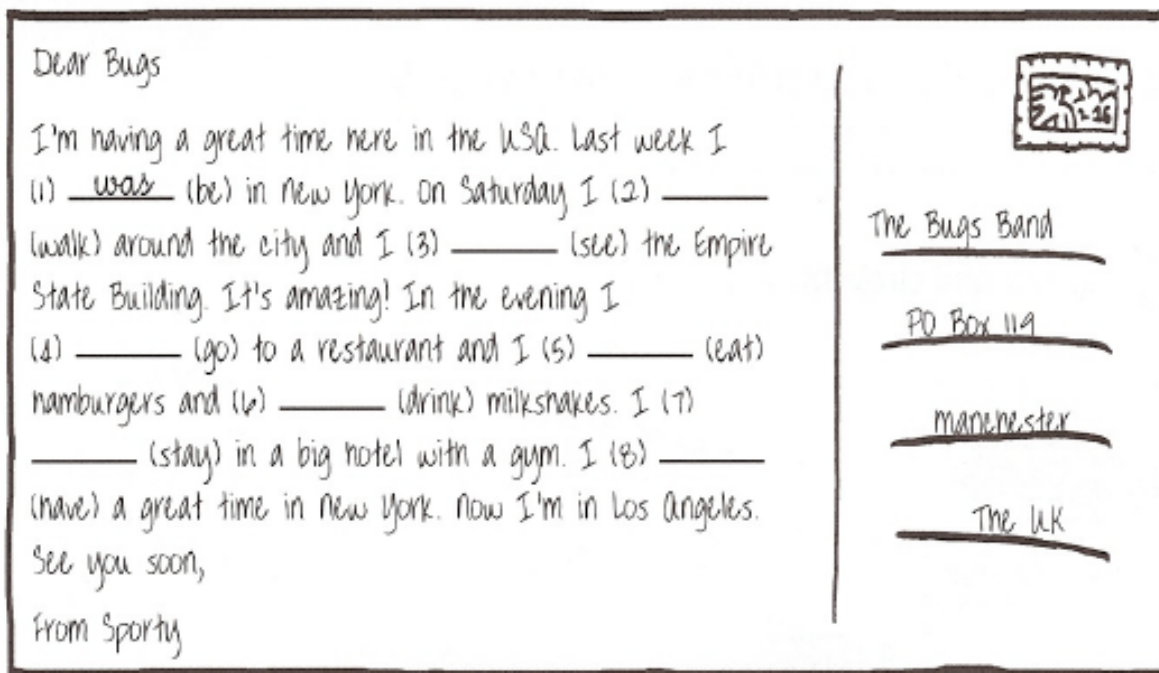 Dear Bugs
I'm having a great time here in the USA. Last week I
(1) was (be) in New York. On Saturday I (2) ________
(walk) around the city and I (3) ________ (see) the Empire
State Building. It's amazing! In the evening I
(4) ________ (go) to a restaurant and I (5) ________ (eat)
hamburgers and (6) ________ (drink) milkshakes. I (7)
________ (stay) in a big hotel with a gym. I (8) ________
(have) a great time in New York. Now I'm in Los Angeles.
See you soon,
From Sporty
16
The Bugs Band
PO Box 119
Manchester
The UK